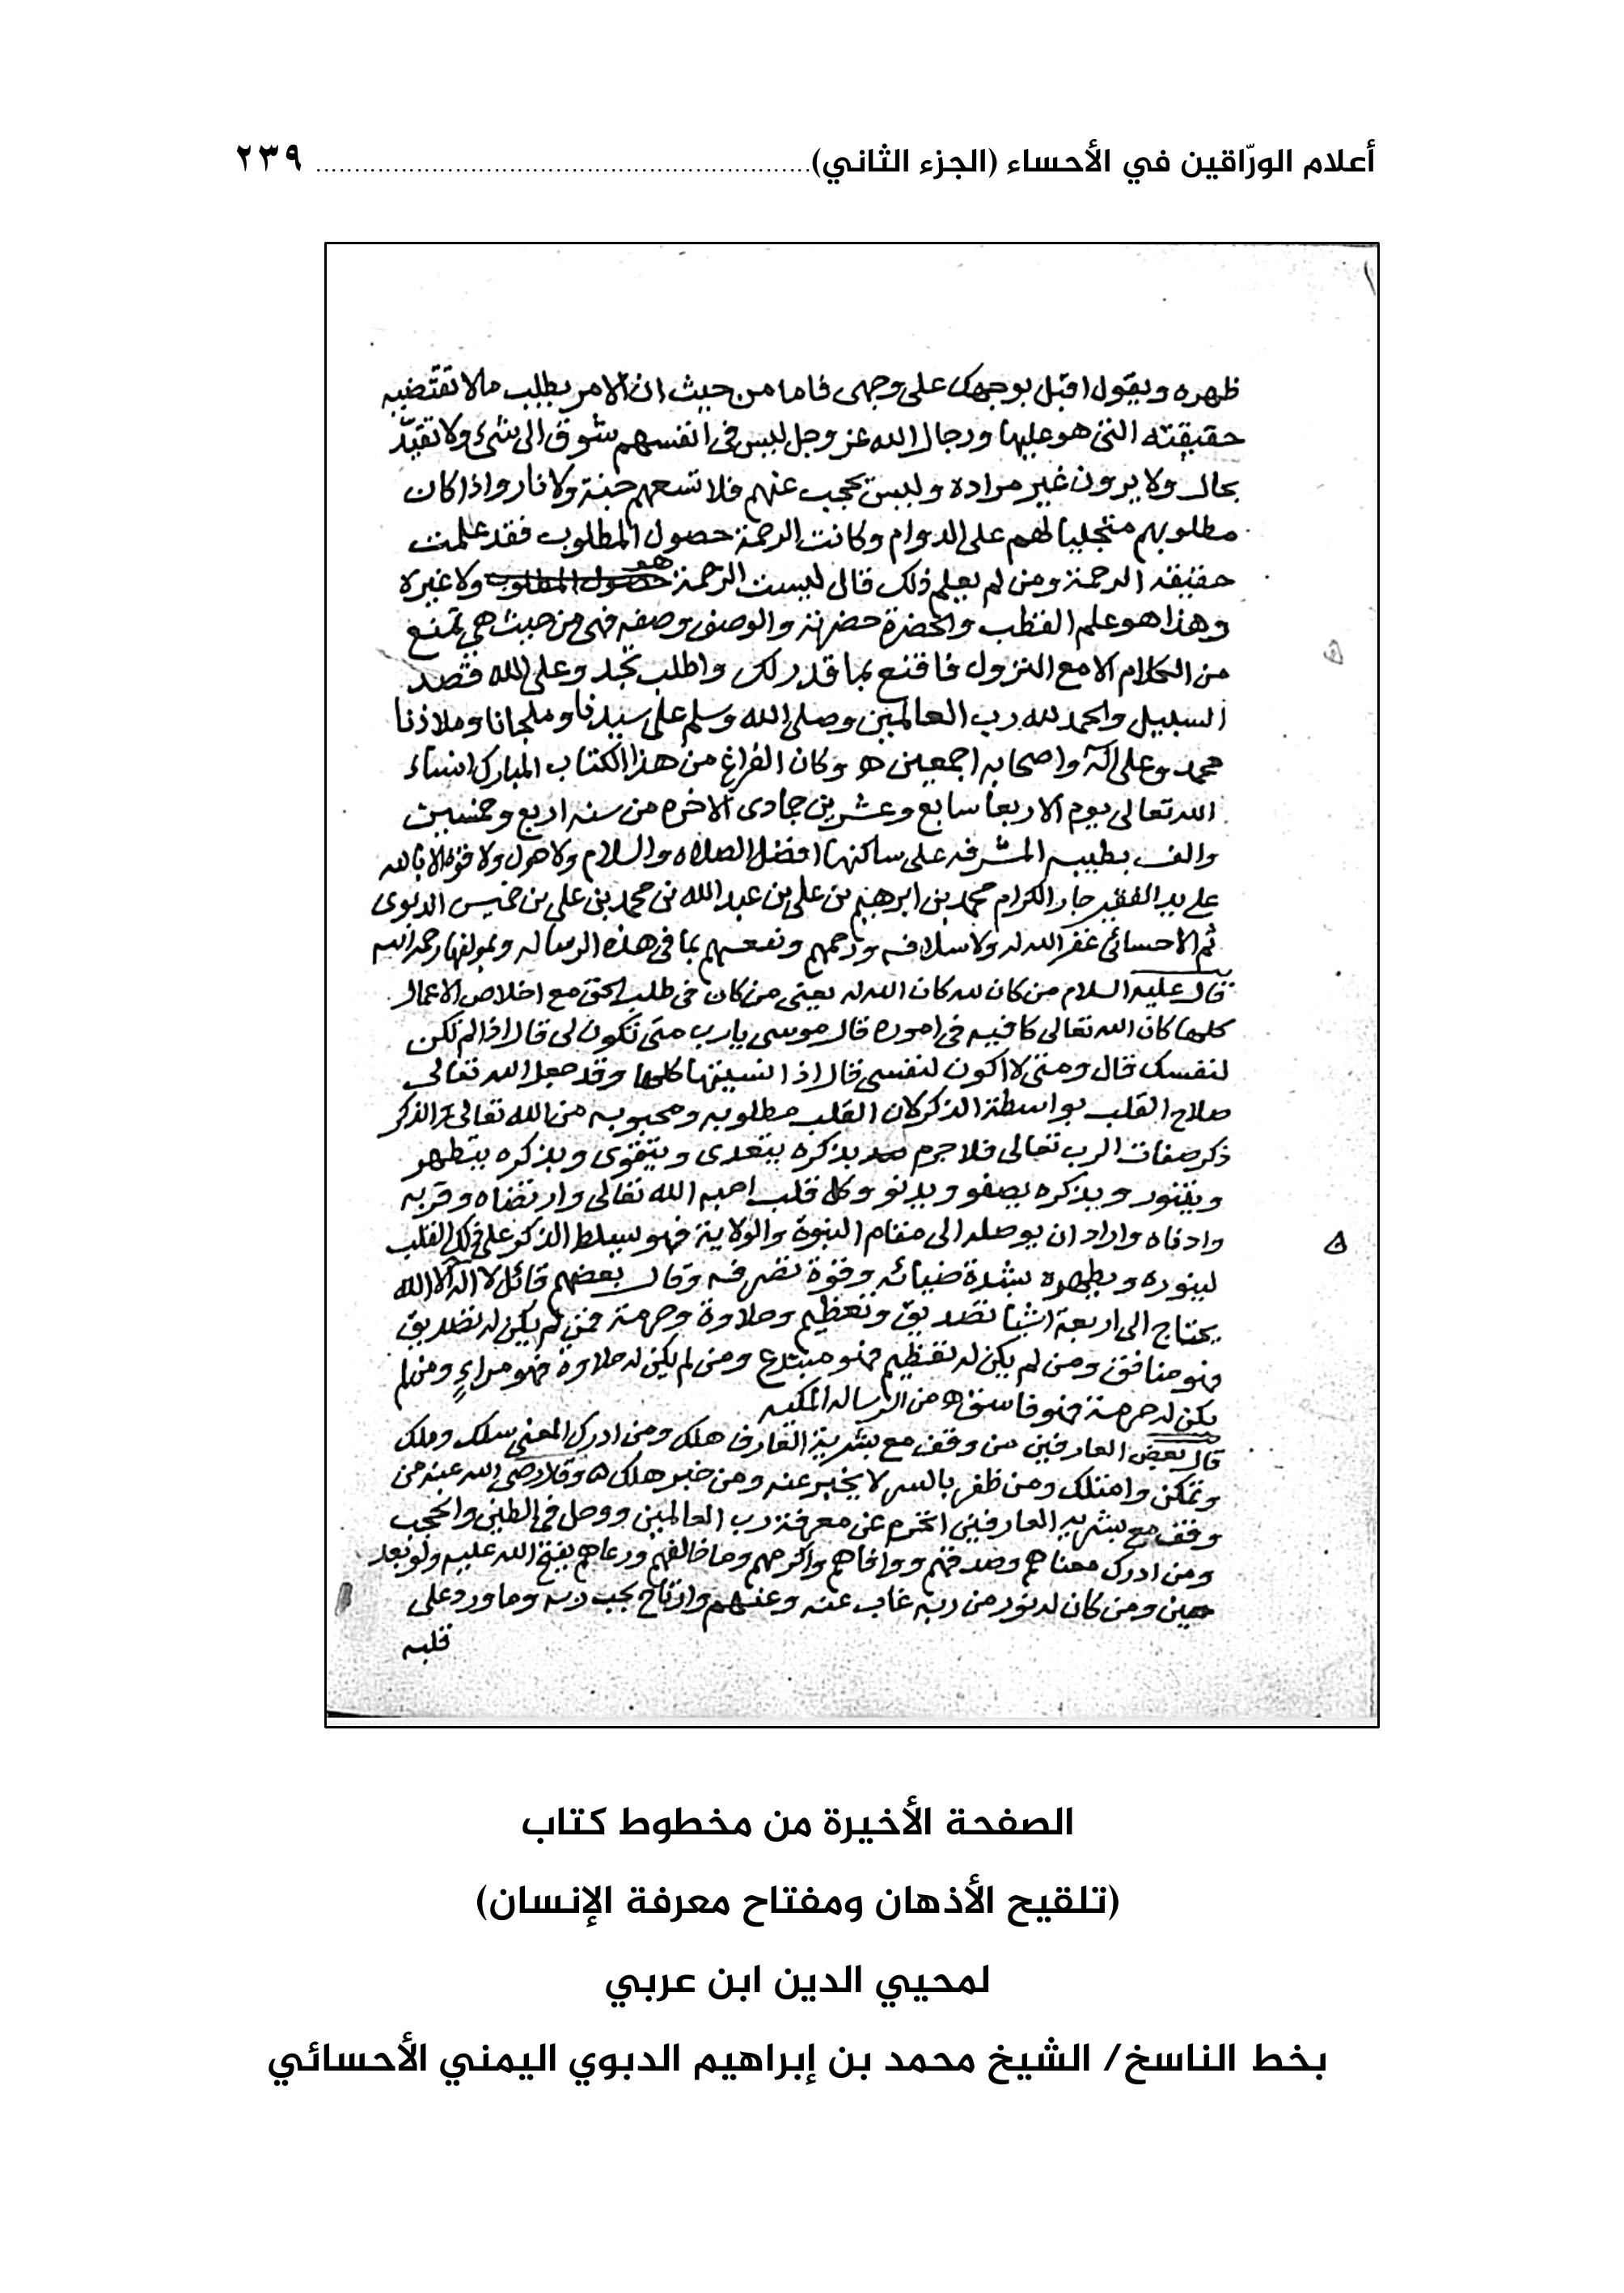 أعلام الورّاقين في الأحساء (الجزء الثاني)............................................................... ٢٣٩
ظهره ويقول اقبل بوجهك على وجهى فاما من حيث ان الامر يطلب مالا تقتضيه
حقيقته التى هو عليها ورجال الله عز وجل ليس فى انفسهم شوق الى شىء ولا تقيّد
بحال ولا يرون غير مراده وليس يحجب عنهم فلا تسعهم جنة ولا نار واذا كان
مطلوبهم متجليا لهم على الدوام وكانت الرحمة حصول المطلوب فقد علمت
حقيقة الرحمة ومن لم يعلم ذلك قال ليست الرحمة حصول المطلوب هو ولا غيره
وهذا هو علم القطب والحضرة حضرته والوصف وصفه فهى من حيث هى تمنع
من الكلام الا مع النزول فاقنع بما قدر لك واطلب تجد وعلى الله قصد
السبيل والحمد لله رب العالمين وصلى الله وسلم على سيدنا وملجانا وملاذنا
محمد وعلى اله واصحابه اجمعين وكان الفراغ من هذا الكتاب المبارك انشاء
الله تعالى يوم الاربعا سابع وعشرين جمادى الاخره من سنه اربع وخمسين
والف بطيبه المشرفه على ساكنها افضل الصلاه والسلام ولا حول ولا قوة الا بالله
على يد الفقير جار الكرام محمد بن ابرهيم بن على بن عبد الله بن محمد بن على بن خميس الدبوى
ثم الاحسائى غفر الله له ولاسلافه ورحمهم ونفعهم بما فى هذه الرساله وبمولفها رحمه الله
قال عليه السلام من كان لله كان الله له يعنى من كان فى طلب الحق مع اخلاص الاعمال
كلها كان الله تعالى كافيه فى اموره قال موسى يارب متى تكون لى قال اذا لم تكن
لنفسك قال ومتى لا اكون لنفسى قال اذا نسيتها كلها وقد جعل الله تعالى
صلاح القلب بواسطة الذكر لان القلب مطلوبه ومحبوبه من الله تعالى الذكر
ذكر صفات الرب تعالى فلا جرم بذكره يتغدى ويتقوى وبذكره يتطهر
ويتنور وبذكره يصفو ويدنو وكل قلب احبه الله تعالى وارتضاه وقربه
وادناه واراد ان يوصله الى مقام النبوة والولاية فهو يسلط الذكر على ذلك القلب
لينوره ويطهره بشدة ضيائه وقوة تصرفه وقال بعضهم قائل لا اله الا الله
يحتاج الى اربعة اشيا تصديق وتعظيم وحلاوة وحرمة فمن لم يكن له تصديق
فهو منافق ومن لم يكن له تعظيم فهو مبتدع ومن لم يكن له حلاوة فهو مراءٍ ومن لم
يكن له حرمة فهو فاسق من الرساله المكيه
قال بعض العارفين من وقف مع بشرية العارف هلك ومن ادرك المعنى سلك وملك
وتمكن وامتلك ومن ظفر بالسر لا يخبر عنه ومن خبر هلك وقال رضى الله عنه من
وقف مع بشريه العارفين انخرم عن معرفة رب العالمين ووحل فى الطين والحجب
ومن ادرك معناهم وصدقهم ووافاهم واكرمهم وما خالفهم ورعاهم يفتح الله عليه ولو بعد
حين ومن كان له نور من ربه غاب عنه وعنهم وارتاح بحب ربه وما ورد على
قلبه
الصفحة الأخيرة من مخطوط كتاب
(تلقيح الأذهان ومفتاح معرفة الإنسان)
لمحيي الدين ابن عربي
بخط الناسخ/ الشيخ محمد بن إبراهيم الدبوي اليمني الأحسائي